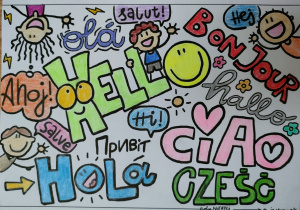 salut!
Hej
olá
BONJOUR
HELLO
Ahoj!
hallo
salve!
Hi!
Привіт
CIAO
HOLA
CZEŚĆ